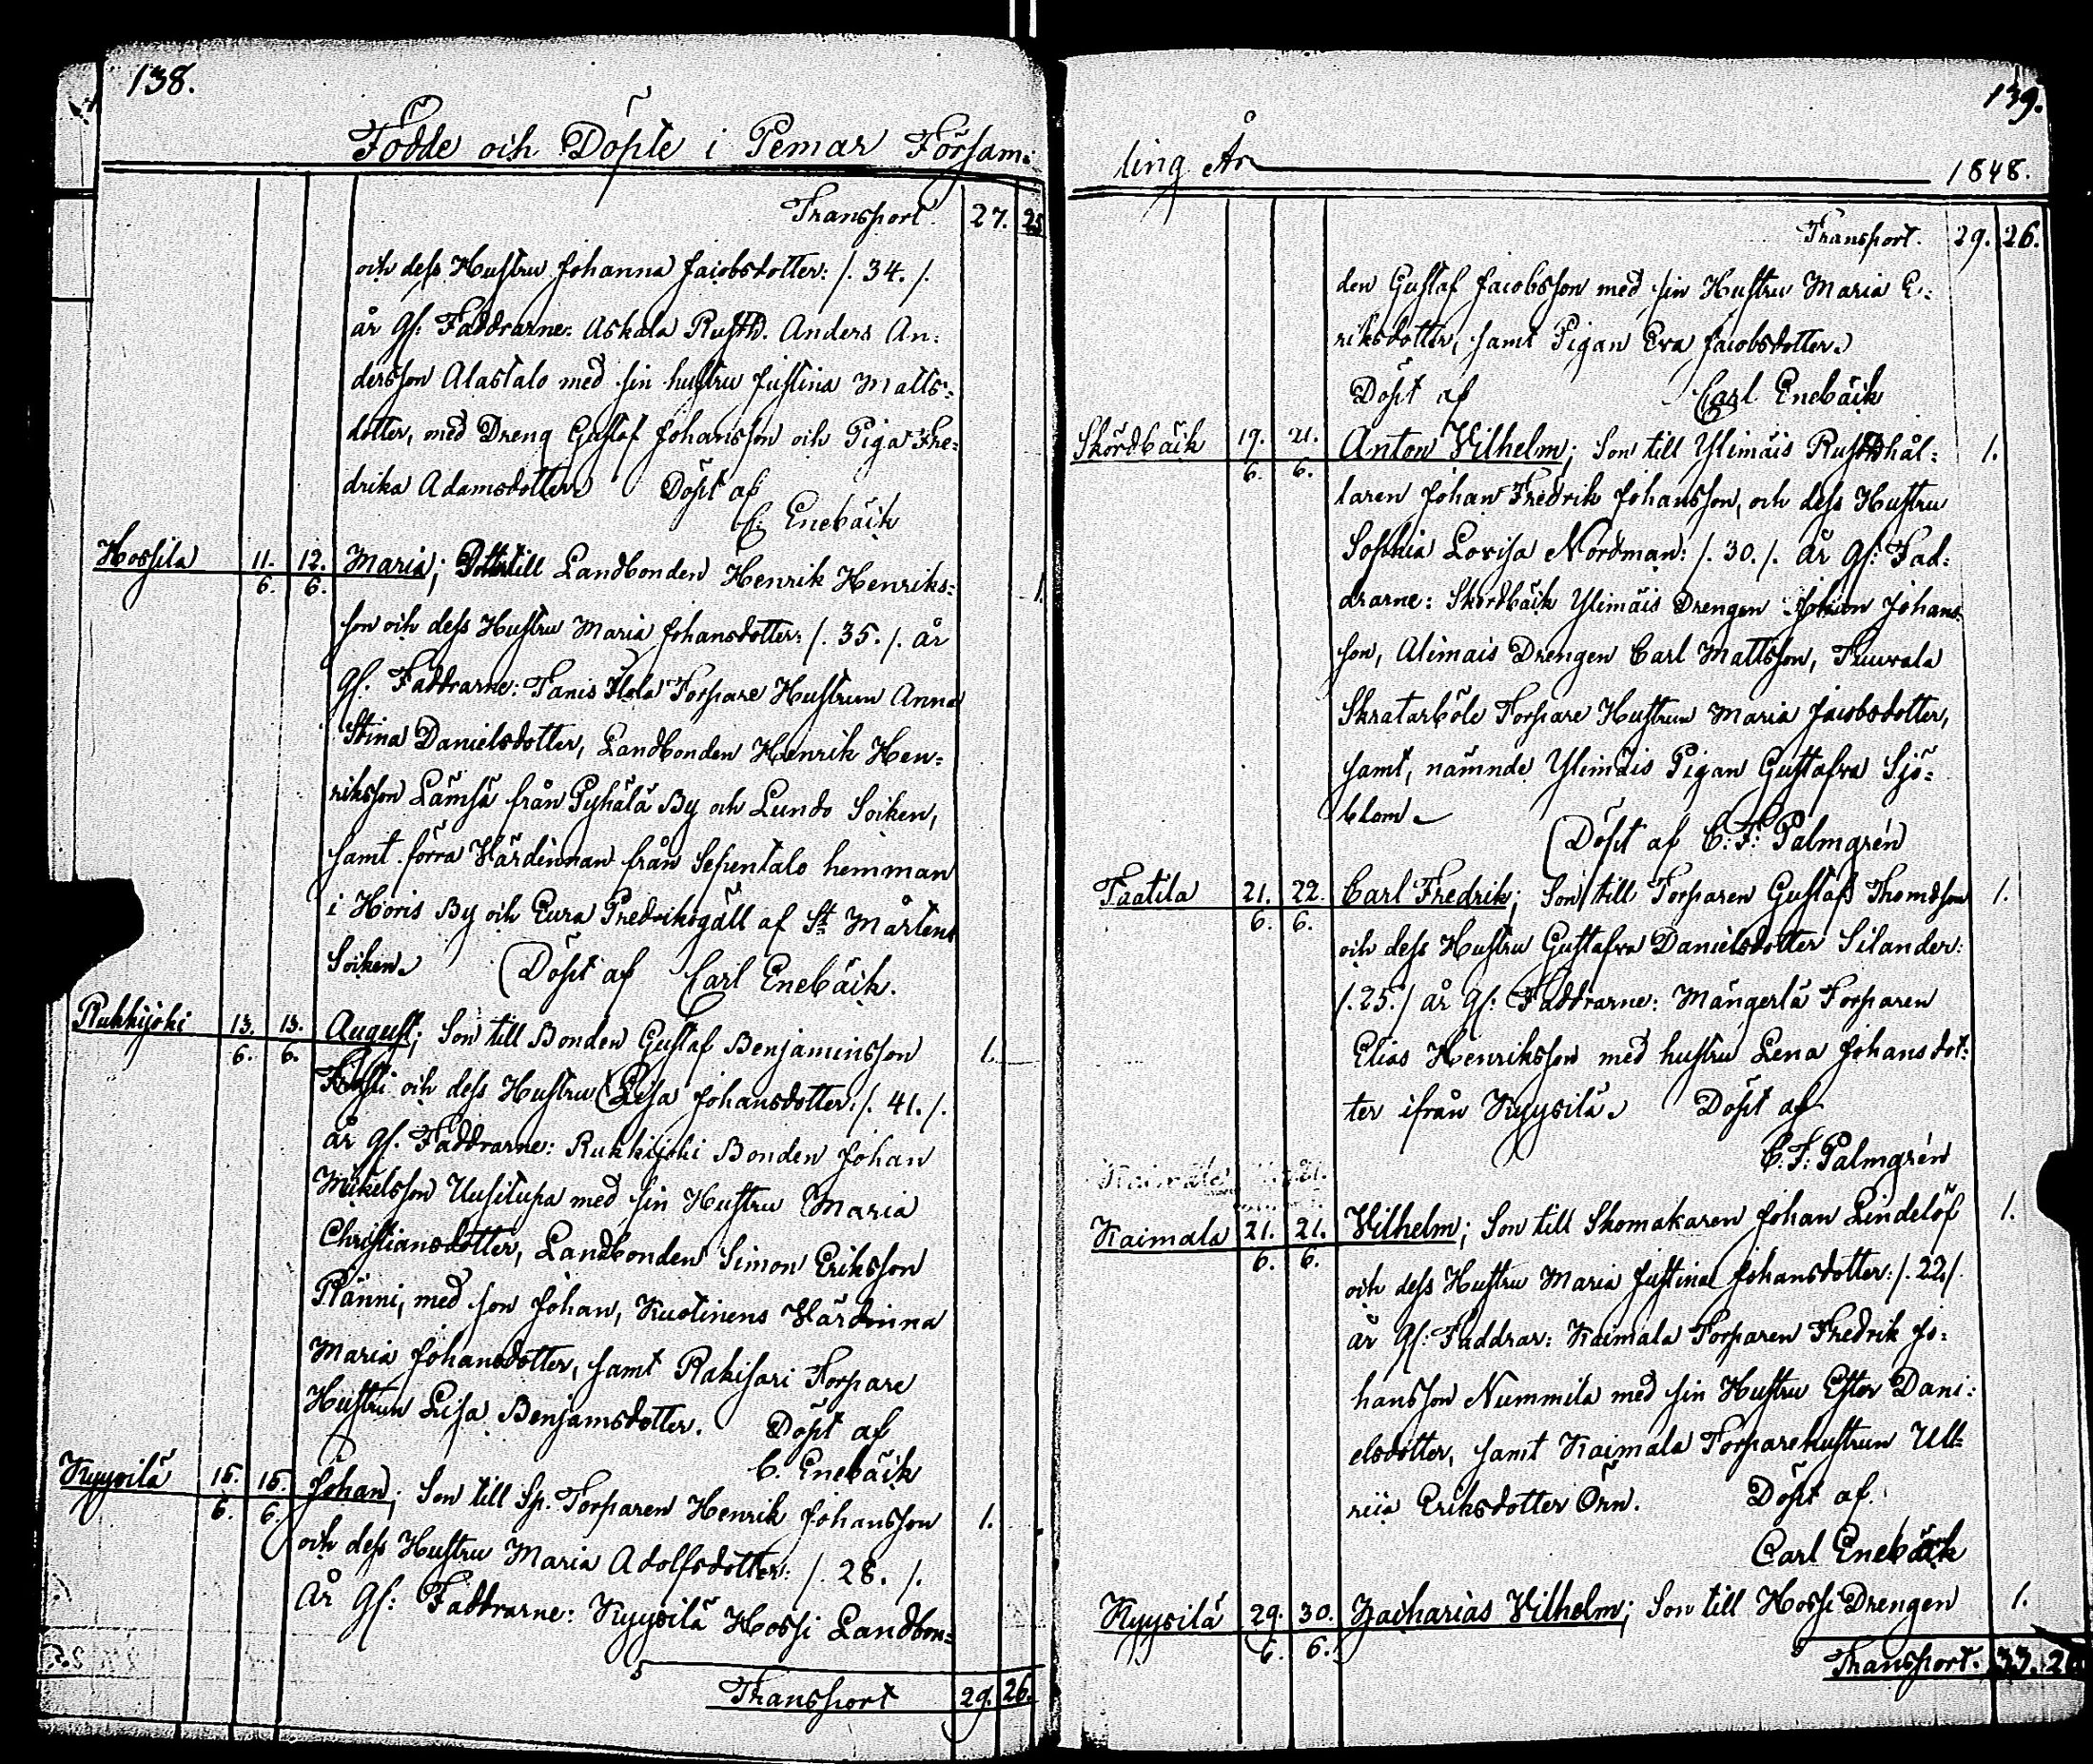 138.
Födde och Döpte i Pemar Försam:
Transport. 27. 25
och dess Hustru Johanna Jacobsdotter: /. 34. /.
år gl: Faddrarne: Askala Rusth. Anders An:
dersson Alastalo med sin hustru Justina Matts:
dotter, med Dreng Gustaf Johansson och Piga Fre:
drika Adamsdotter. Döpt af
C: Enebäck
Hossila 11. 12. Maria; Dotter till Landbonden Henrik Henriks: 1.
6. 6.
son och dess Hustru Maria Johansdotter: /. 35. /. år
gl. Faddrarne: Tanis Torpare Hustrun Anna
Stina Danielsdotter, Landbonden Henrik Hen:
riksson Lämsä från Pyhälä By och Lundo Socken,
samt förra Värdinnan från Sepentalo hemman
i Horis By och Eura Predikogäll af St. Mårtens
Socken. Döpt af Carl Enebäck.
Rukkijoki 13. 13. August; Son till Bonden Gustaf Benjaminsson 1.
6. 6.
och dess Hustru Lisa Johansdotter: /. 41. /.
år gl. Faddrarne: Rukkijoki Bonden Johan
Mikelsson Uusitupa med sin Hustru Maria
Christiansdotter, Landbonden Simon Eriksson
Pränni, med son Johan, Kuotinens Värdinna
Maria Johansdotter, samt Rakisari Torpare
Hustrun Lisa Benjamsdotter. Döpt af
C. Enebäck
Kyysilä 15. 15. Johan; Son till Sp. Torparen Henrik Johansson 1.
6. 6.
och dess Hustru Maria Adolfsdotter: /. 28. /.
År gl: Faddrarne: Kyysilä Hossi Landbon:
Transport 29. 26.
139.
ling År 1848.
Transport. 29. 26.
den Gustaf Jacobsson med sin Hustru Maria E:
riksdotter, samt Pigan Eva Jacobsdotter.
Döpt af Carl Enebäck
Skördbäck 19. 21. Anton Vilhelm; Son till Ylimäis Rusthål: 1.
6. 6.
laren Johan Fredrik Johansson, och dess Hustru
Sophia Lovisa Nordman: /. 30. /. År gl: Fad:
drarne: Skördbäck Ylimäis Drengen Johan Johans
son, Alimais Drengen Carl Mattsson, Truvala
Skratarböle Torpare Hustrun Maria Jacobsdotter,
samt, nämnde Ylimäis Pigan Gustafva Sjö:
blom.
Döpt af C: F: Palmgrén
Taatila 21. 22. Carl Fredrik; Son till Torparen Gustaf Thomsson 1.
6. 6.
och dess Hustru Gustafva Danielsdotter Silander:
/. 25. / år gl: Faddrarne: Mängerlä Torparen
Elias Henriksson med hustru Lena Johansdot:
ter ifrån Kyysilä. Döpt af
C. F: Palmgrén
Kaimala 21.
Kaimala 21. 21. Vilhelm; Son till Skomakaren Johan Lindelöf 1.
6. 6.
och dess Hustru Maria Justina Johansdotter: /. 22 /.
år gl: Faddrar: Kaimala Torparen Fredrik Jo:
hansson Nummila med sin Hustru Ester Dani:
elsdotter, samt Kaimala Torparehustrun Ull:
rica Eriksdotter Örn. Döpt af.
Carl Enebäck
Kyysilä 29. 30. Zacharias Vilhelm; Son till Hossi Drengen 1.
6. 6.
Transport. 33. 26